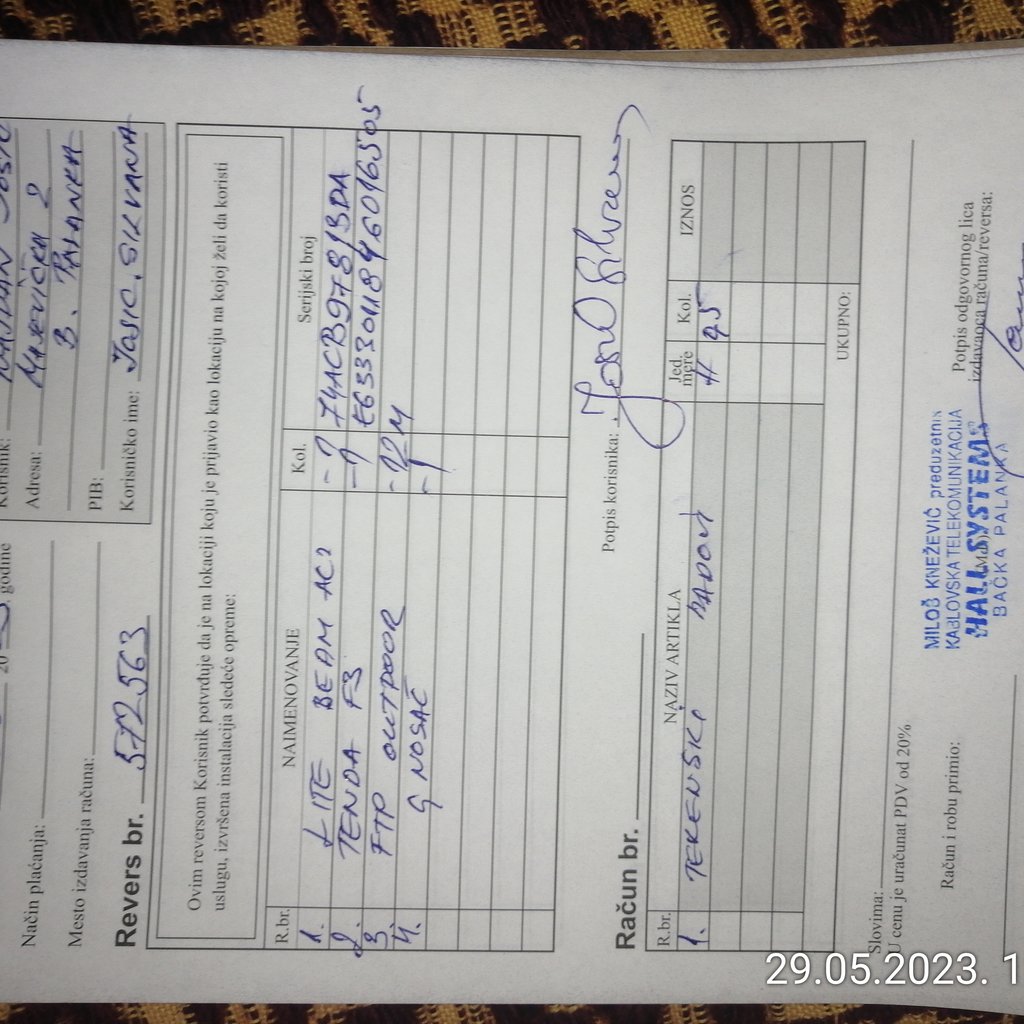 Adresa: Majevička 2
B. PALANKA
PIB:
Korisničko ime: JOSIC.SILVANA
godine
Način plaćanja:
Mesto izdavanja računa:
Revers br. 572563
Ovim reversom Korisnik potvrđuje da je na lokaciji koju je prijavio kao lokaciju na kojoj želi da koristi
uslugu, izvršena instalacija sledeće opreme:
R.br. NAIMENOVANJE Kol. Serijski broj
1. LITE BEAM AC2 - 1 74ACB9781BDA
2. TENDA F3 - 1 E6333011846016505
3. FTP OUTDOOR - 12M
4. G NOSAČ - 1
Potpis korisnika:
Račun br.
R.br. NAZIV ARTIKLA Jed. mere Kol. IZNOS
1. TERENSKI RADOVI H 0,5
UKUPNO:
Slovima:
U cenu je uračunat PDV od 20%
Račun i robu primio:
(M.P.)
Potpis odgovornog lica
izdavaoca računa/reversa:
MILOŠ KNEŽEVIĆ preduzetnik
KABLOVSKA TELEKOMUNIKACIJA
HALL SYSTEM
BAČKA PALANKA
29.05.2023. 1